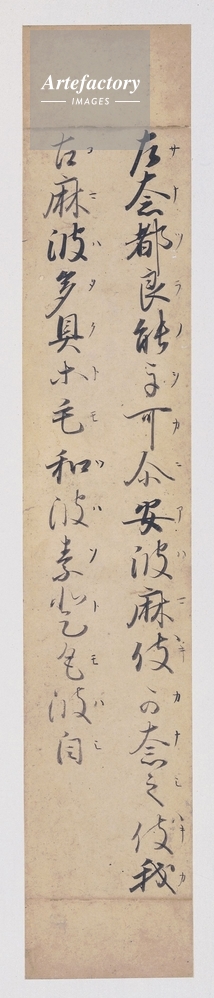 Artefactory
IMAGES
左奈都良能乎可尓安波麻伎可奈之伎我
サナツラノヲカニアハマキカナシキカ
古麻波多具等毛和波素登毛波自
コマハタクトモワハソトモハシ